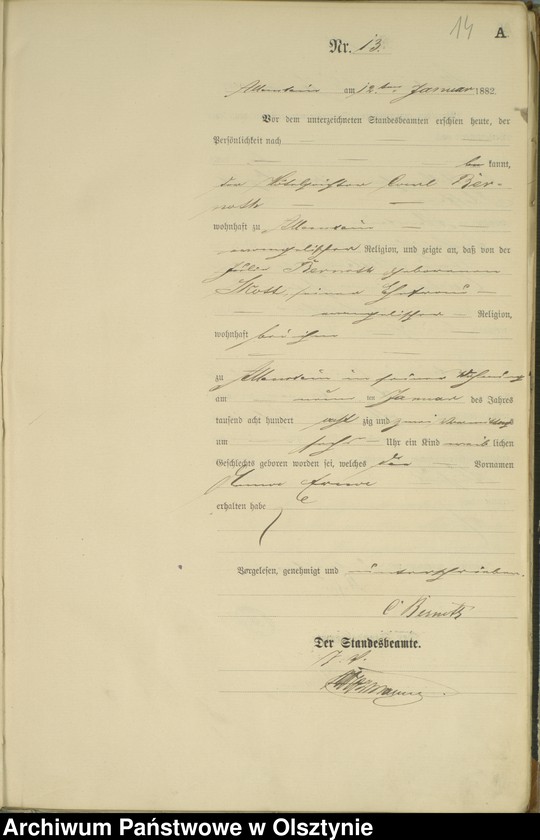 14
A
Nr. 13.
Allenstein am 12ten Januar 1882.
Vor dem unterzeichneten Standesbeamten erschien heute, der
Persönlichkeit nach
be kannt,
der Carl Ber-
noth
wohnhaft zu Allenstein
evangelischer Religion, und zeigte an, daß von der
Bernoth geborenen
seiner Ehefrau
evangelischer Religion,
wohnhaft bei ihm
zu Allenstein in seiner Wohnung
am neun ten Januar des Jahres
tausend acht hundert acht zig und zwei
um sechs Uhr ein Kind weib lichen
Geschlechts geboren worden sei, welches den Vornamen
erhalten habe
Vorgelesen, genehmigt und unterschrieben.
C Bernoth
Der Standesbeamte.
Archiwum Państwowe w Olsztynie